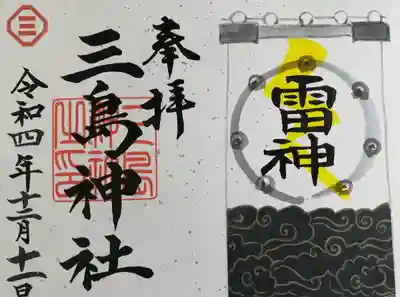 奉拝
三島神社
令和四年十二月十一日
雷神